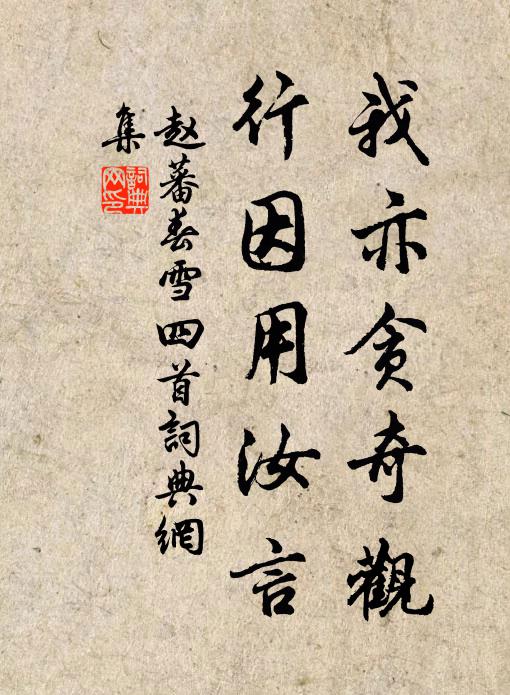 我亦贪奇觀
行因用汝言
赵蕃春雪四首詞典網
集
詞典
网印